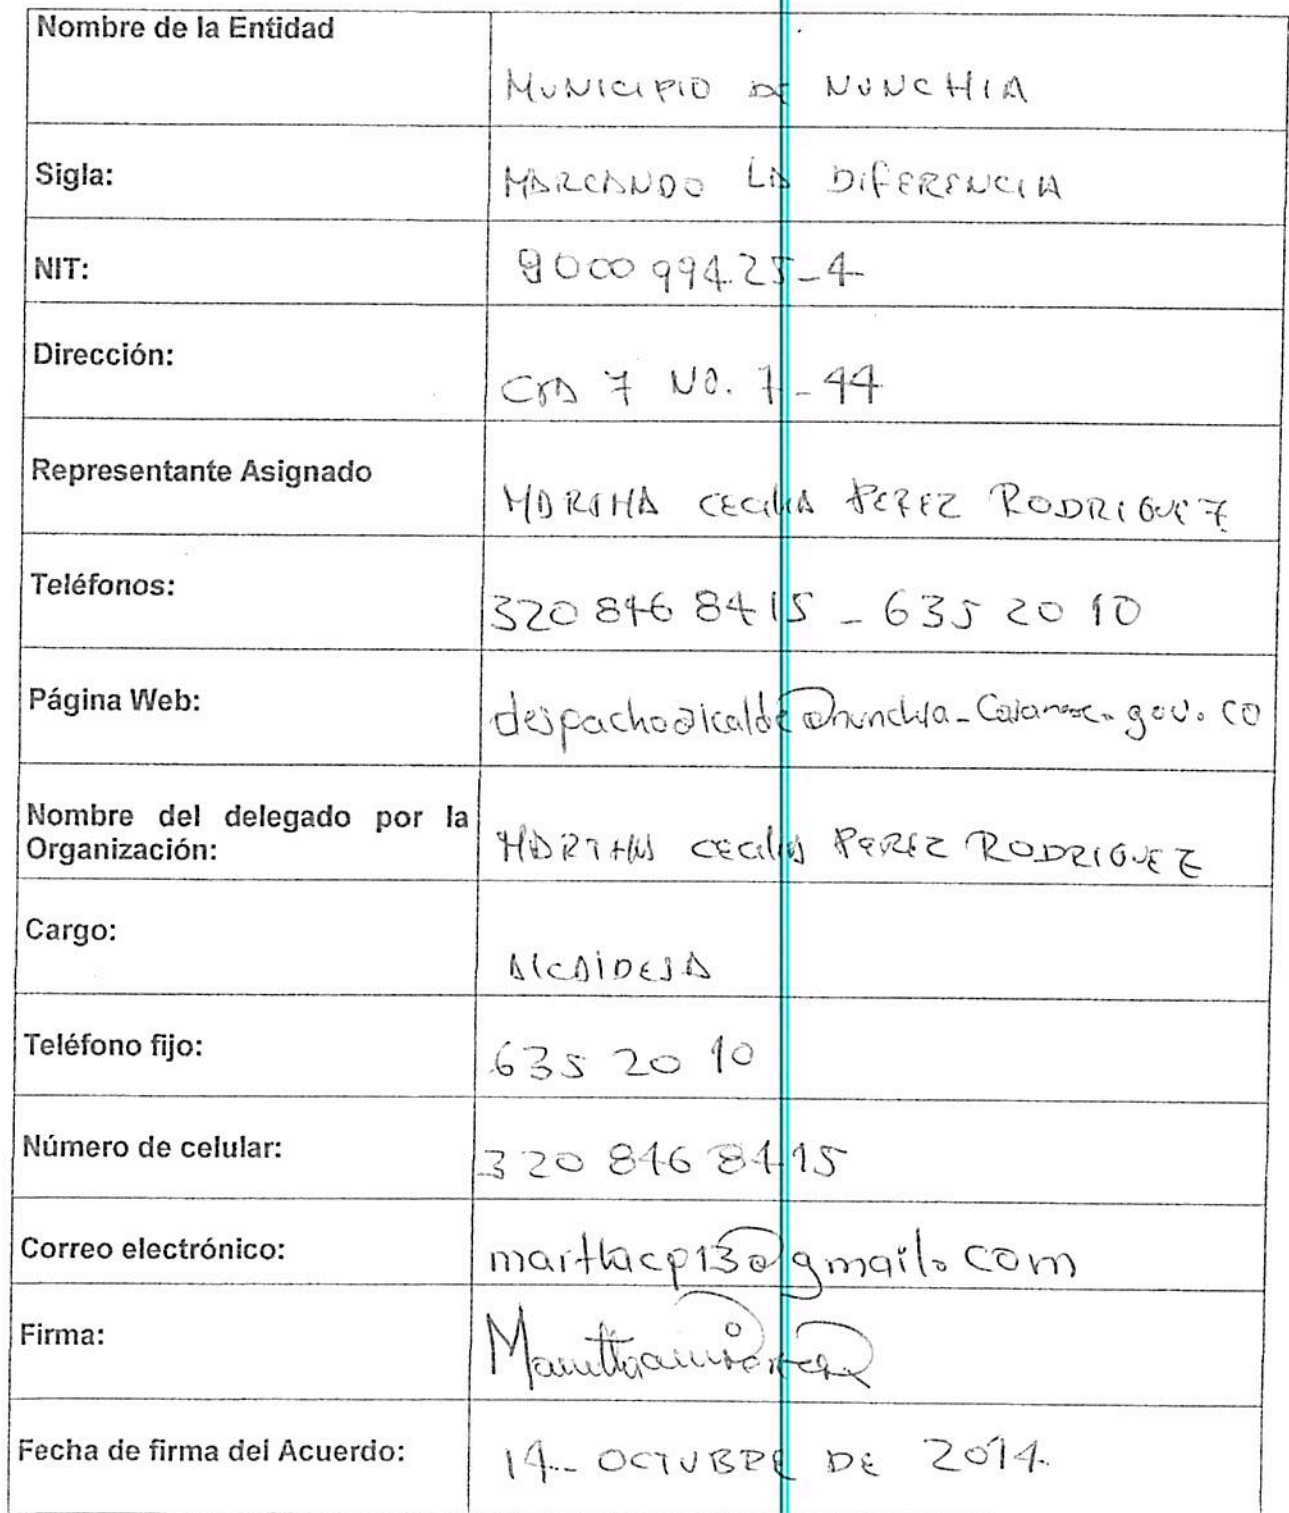 Nombre de la Entidad
MUNICIPIO DE NUNCHIA
Sigla:
MARCANDO LA DIFERENCIA
NIT:
9000994.25-4
Dirección:
Cra 7 NO. 7-44
Representante Asignado
MARTHA CECILIA PEREZ RODRIGUEZ
Teléfonos:
320 846 8415 - 635 20 10
Página Web:
despachoalcalde@nunchia-Casanare.gov.co
Nombre del delegado por la
Organización:
MARTHA CECILIA PEREZ RODRIGUEZ
Cargo:
AlCAlDESA
Teléfono fijo:
635 20 10
Número de celular:
320 846 8415
Correo electrónico:
marthacp13@gmail.com
Firma:
Fecha de firma del Acuerdo:
14- OCTUBRE DE 2014.